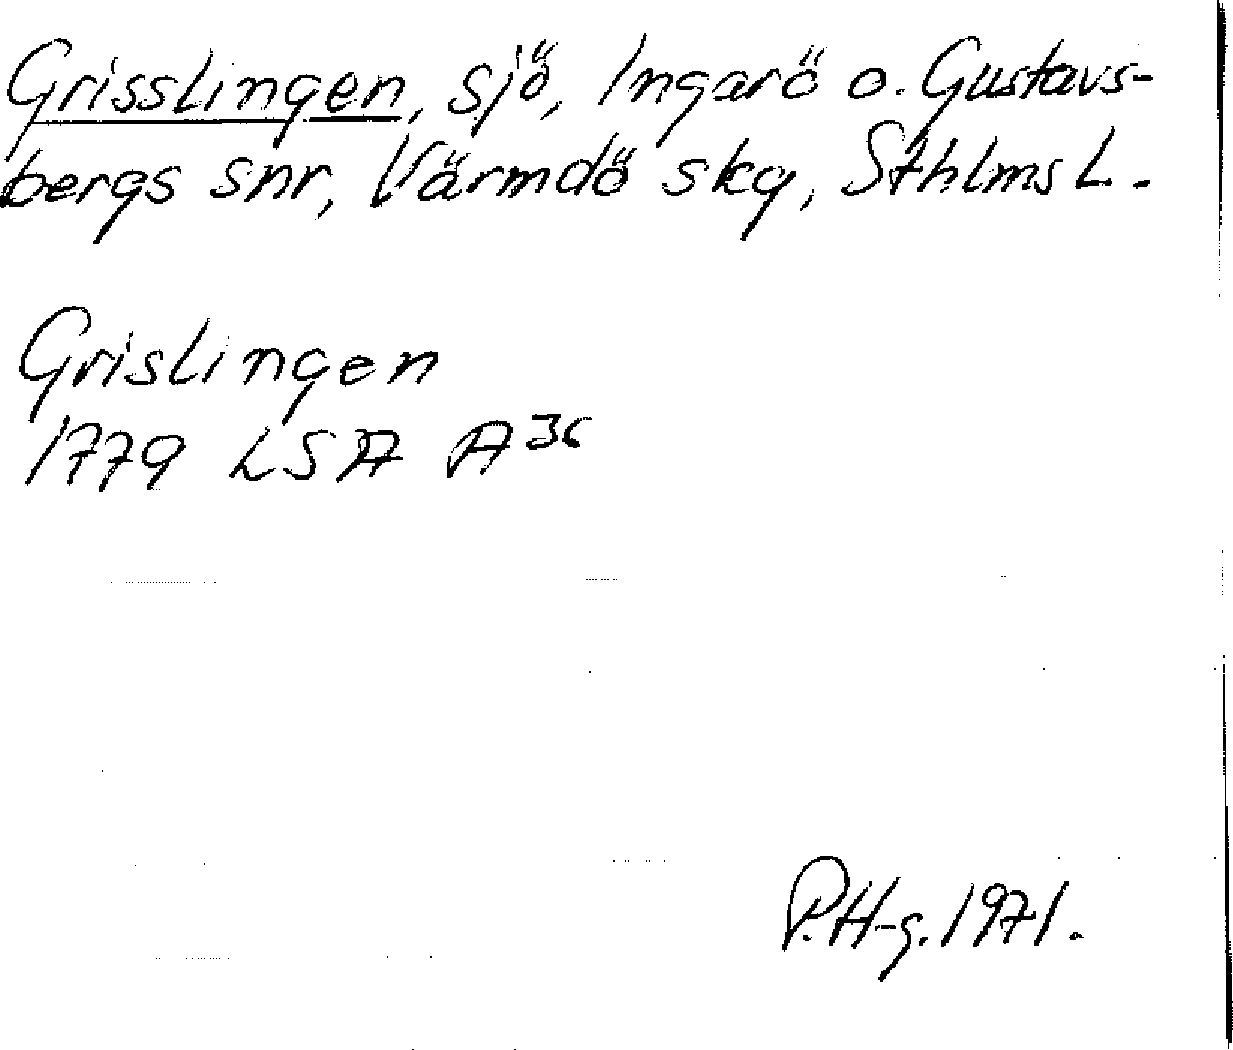 Grisslingen, sjö, Ingarö o. Gustavs-
bergs snr, Värmdö skg, Sthlms L.
Grislingen
1779 LSA A 36
P.H-g. 1971.